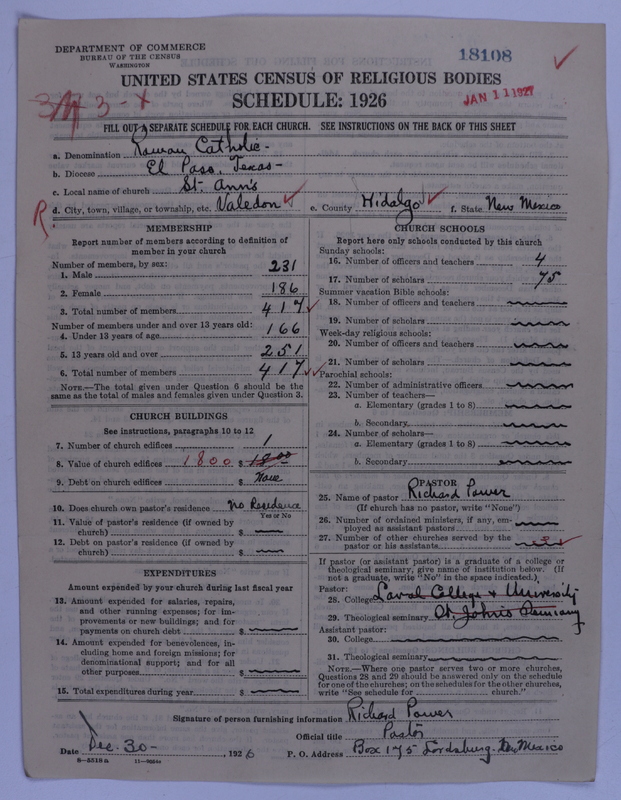 DEPARTMENT OF COMMERCE
BUREAU OF THE CENSUS
WASHINGTON
18108
UNITED STATES CENSUS OF RELIGIOUS BODIES
SCHEDULE: 1926
JAN 11 1927
FILL OUT A SEPARATE SCHEDULE FOR EACH CHURCH. SEE INSTRUCTIONS ON THE BACK OF THIS SHEET
a. Denomination Roman Catholic -
b. Diocese El Paso, Texas -
c. Local name of church St. Ann's
d. City, town, village, or township, etc. Valedon e. County Hidalgo f. State New Mexico
R
MEMBERSHIP
Report number of members according to definition of
member in your church
Number of members, by sex:
1. Male 231
2. Female 186
3. Total number of members 417
Number of members under and over 13 years old:
4. Under 13 years of age 166
5. 13 years old and over 251
6. Total number of members 417
NOTE.—The total given under Question 6 should be
same as the total of males and females given under Question 3.
CHURCH BUILDINGS
See instructions, paragraphs 10 to 12
7. Number of church edifices 1
8. Value of church edifices 1800 $ 18 00
9. Debt on church edifices $ None
10. Does church own pastor's residence No Residence
Yes or No
11. Value of pastor's residence (if owned by
church) $
12. Debt on pastor's residence (if owned by
church) $
EXPENDITURES
Amount expended by your church during last fiscal year
13. Amount expended for salaries, repairs,
and other running expenses; for im-
provements or new buildings; and for
payments on church debt $
14. Amount expended for benevolences, in-
cluding home and foreign missions; for
denominational support; and for all
other purposes $
15. Total expenditures during year $
CHURCH SCHOOLS
Report here only schools conducted by this church
Sunday schools:
16. Number of officers and teachers 4
17. Number of scholars 75
Summer vacation Bible schools:
18. Number of officers and teachers
19. Number of scholars
Week-day religious schools:
20. Number of officers and teachers
21. Number of scholars
Parochial schools:
22. Number of administrative officers
23. Number of teachers—
a. Elementary (grades 1 to 8)
b. Secondary
24. Number of scholars—
a. Elementary (grades 1 to 8)
b. Secondary
PASTOR
25. Name of pastor Richard Power
(If church has no pastor, write "None")
26. Number of ordained ministers, if any, em-
ployed as assistant pastors
27. Number of other churches served by the
pastor or his assistants
If pastor (or assistant pastor) is a graduate of a college or
theological seminary, give name of institution below. (If
not a graduate, write "No" in the space indicated.)
Pastor:
28. College Laval College & University
29. Theological seminary St Johns Seminary
Assistant pastor:
30. College
31. Theological seminary
NOTE.—Where one pastor serves two or more churches,
Questions 28 and 29 should be answered only on the schedule
for one of the churches; on the schedules for the other churches,
write "See schedule for church."
Signature of person furnishing information Richard Power
Official title Pastor
Date Dec. 30 - , 1926 P. O. Address Box 175 Lordsburg. New Mexico
8—5518a 11—9664a